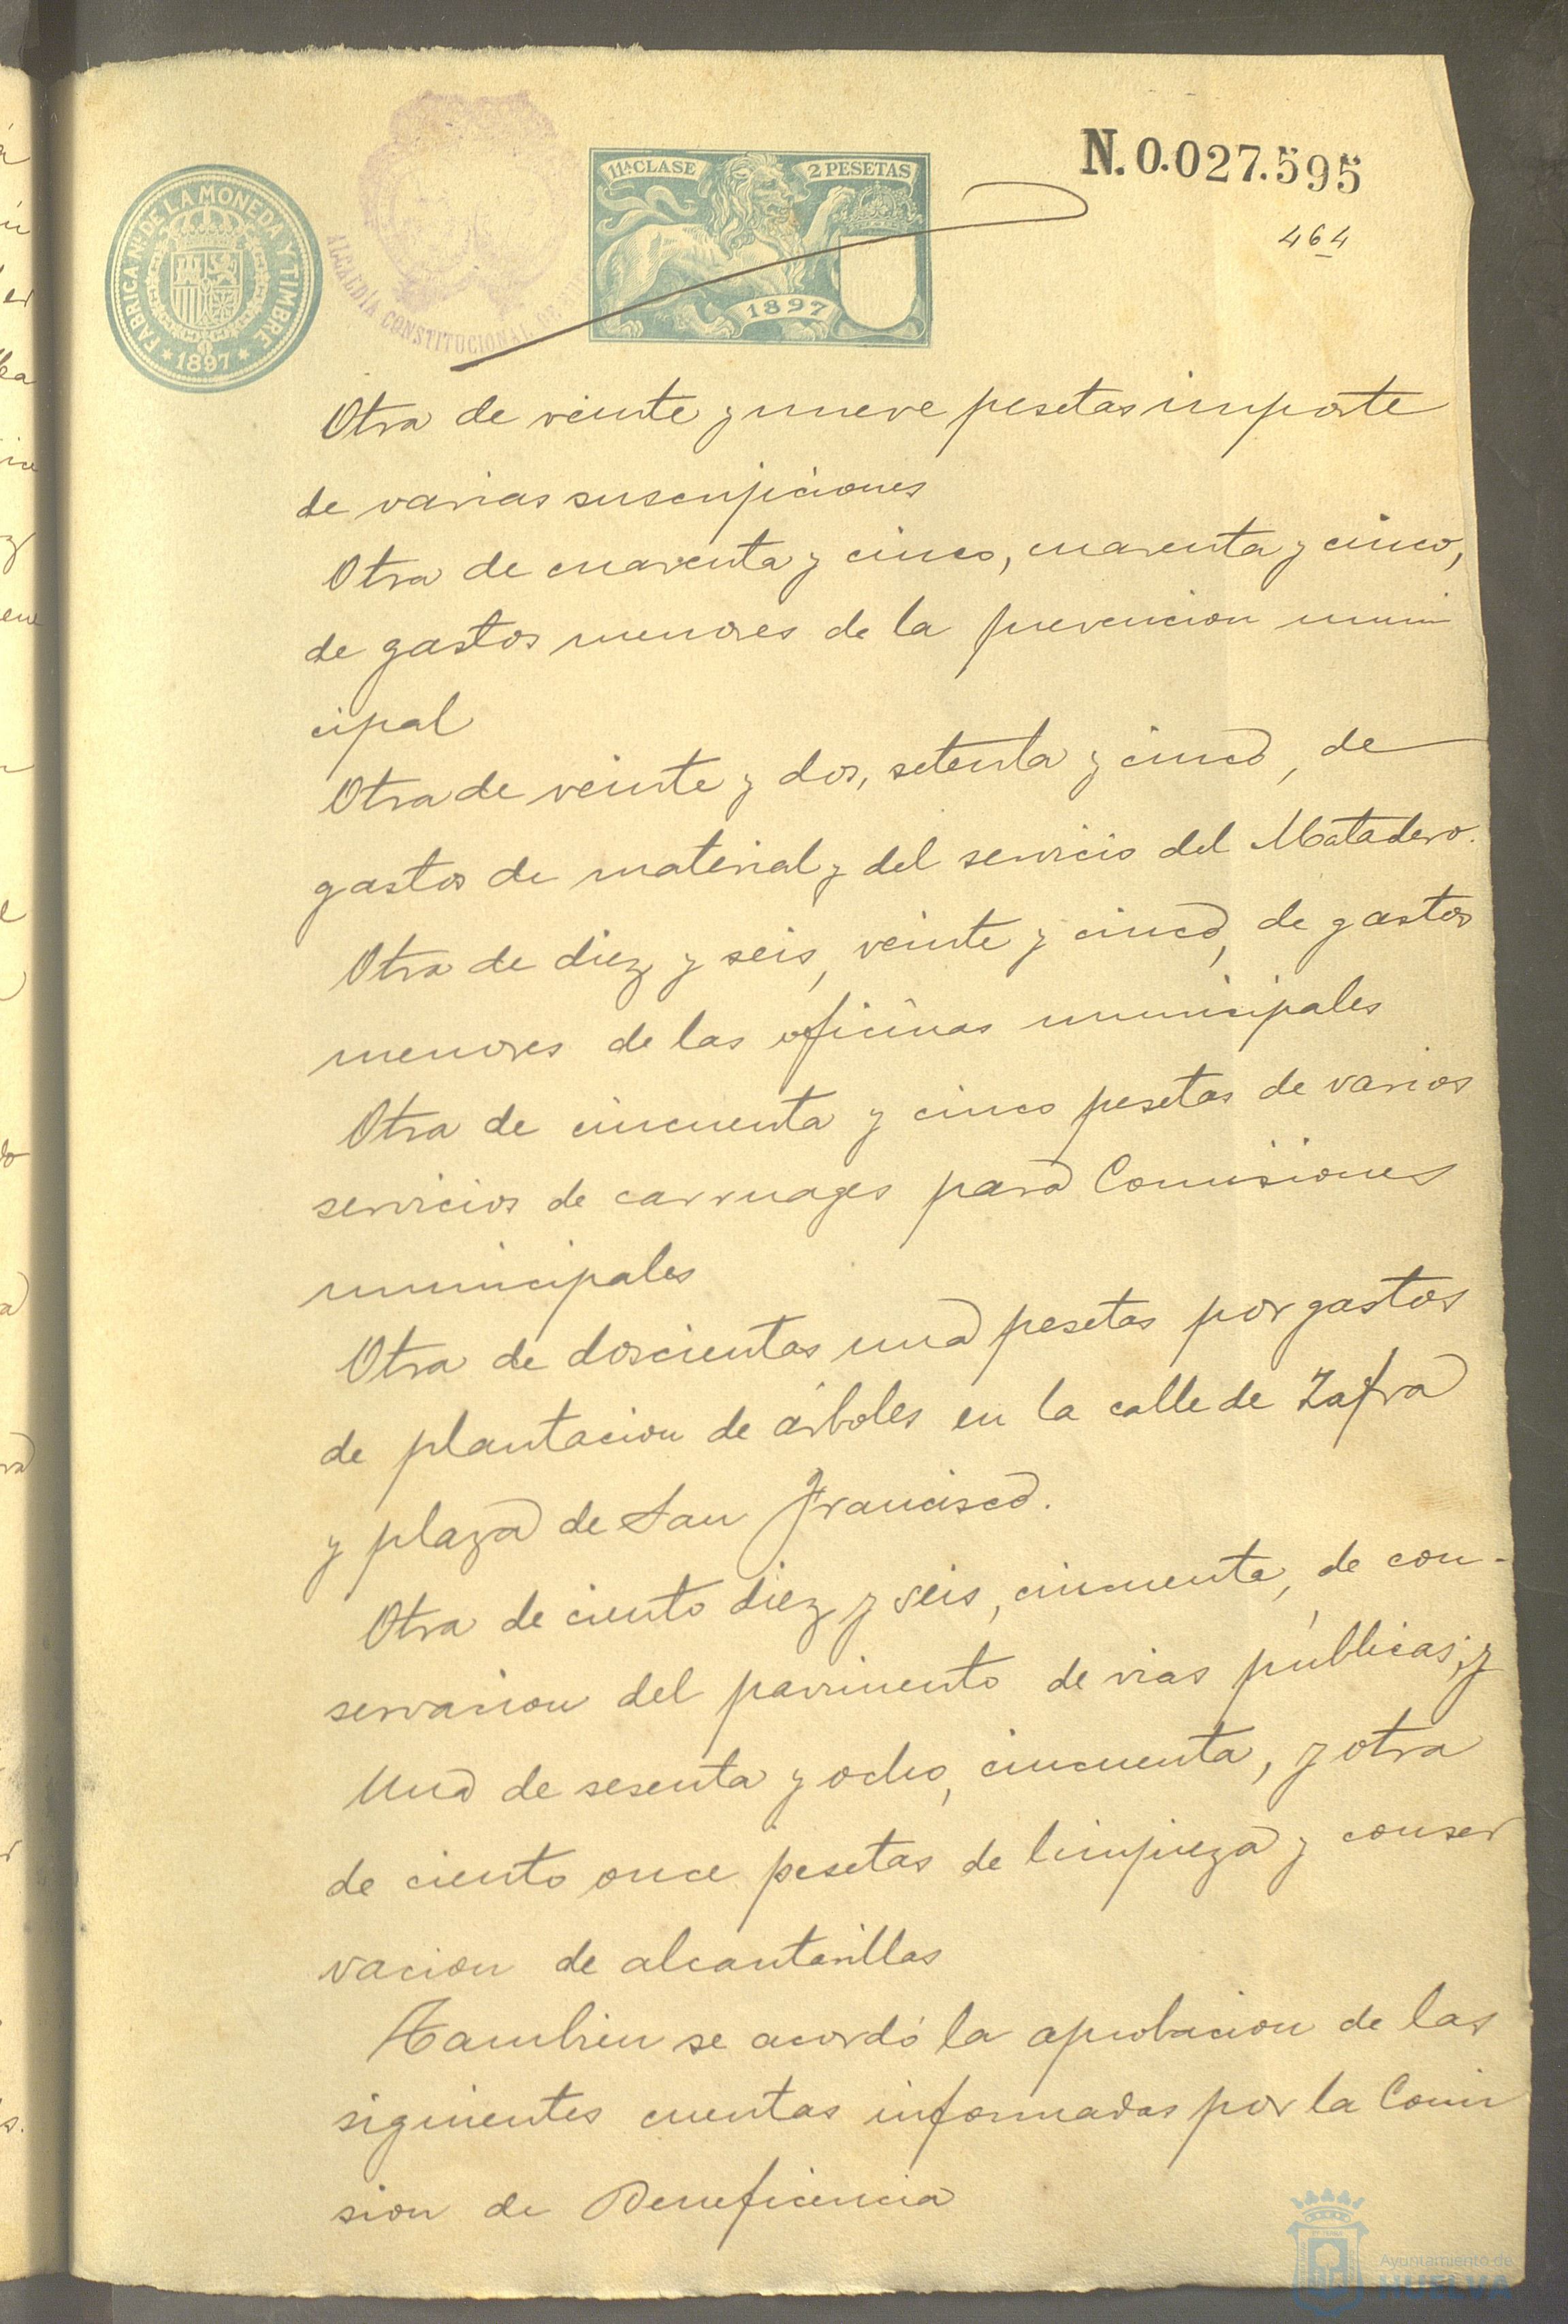 FABRICA Nal. DE LA MONEDA Y TIMBRE
* 1897 *
ALCALDÍA CONSTITUCIONAL DE
11ª CLASE
2 PESETAS
1897
N. 0.027.595
464
Otra de veinte y nueve pesetas importe
de varias suscripciones
Otra de cuarenta y cinco, cuarenta y cinco,
de gastos menores de la prevencion muni
cipal
Otra de veinte y dos, setenta y cinco, de
gastos de material y del servicio del Matadero.
Otra de diez y seis, veinte y cinco, de gastos
menores de las oficinas municipales
Otra de cincuenta y cinco pesetas de varios
servicios de carruages para Comisiones
municipales
Otra de doscientas una pesetas por gastos
de plantacion de árboles en la calle de Zafra
y plaza de San Francisco.
Otra de ciento diez y seis, cincuenta, de con-
servacion del pavimento de vias públicas; y
Una de sesenta y ocho, cincuenta, y otra
de ciento once pesetas de limpieza y conser
vacion de alcantarillas
Tambien se acordó la aprobacion de las
siguientes cuentas informadas por la Comi
sion de Beneficencia
Ayuntamiento de
HUELVA